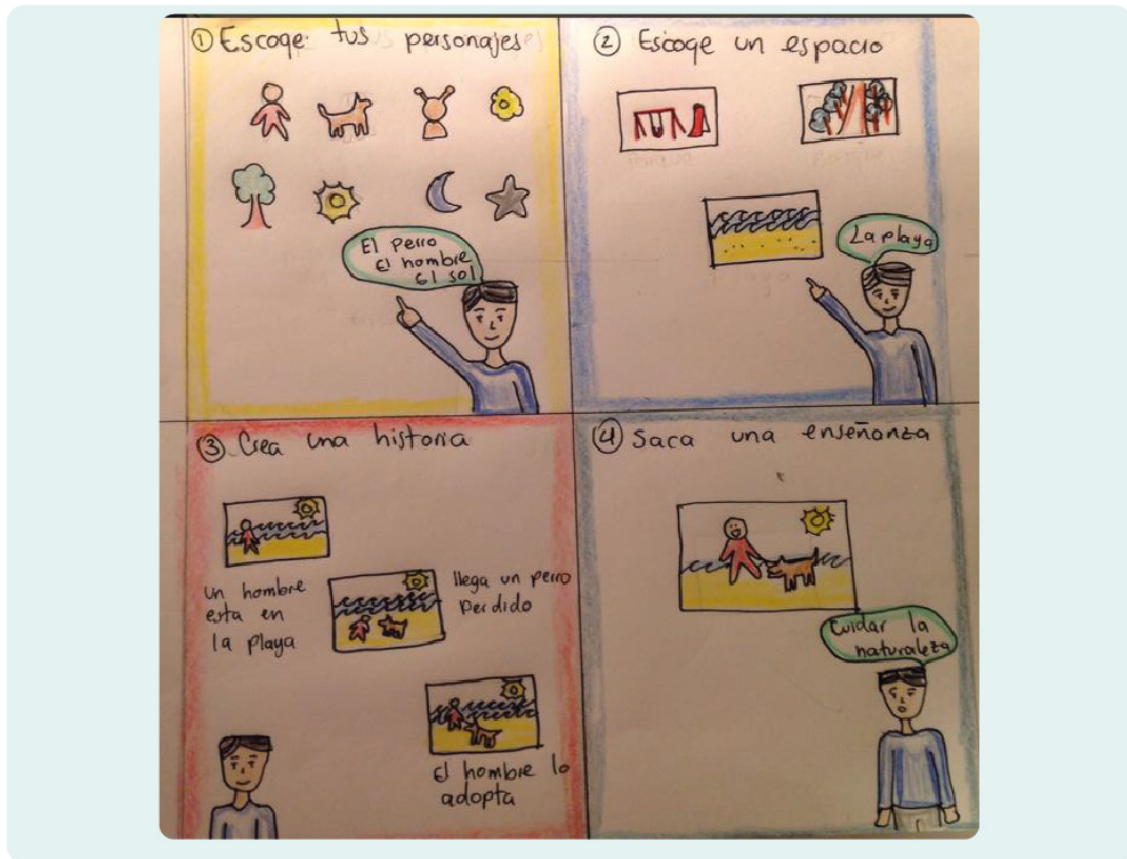 ① Escoge tus personajes
El perro
El hombre
El sol
② Escoge un espacio
La playa
③ Crea una historia
un hombre
esta en
la playa
llega un perro
perdido
El hombre lo
adopta
④ Saca una enseñanza
Cuidar la
naturaleza